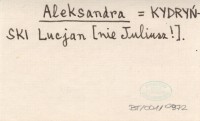 Aleksandra = KYDRYŃ-
SKI Lucjan [nie Juliusz!].